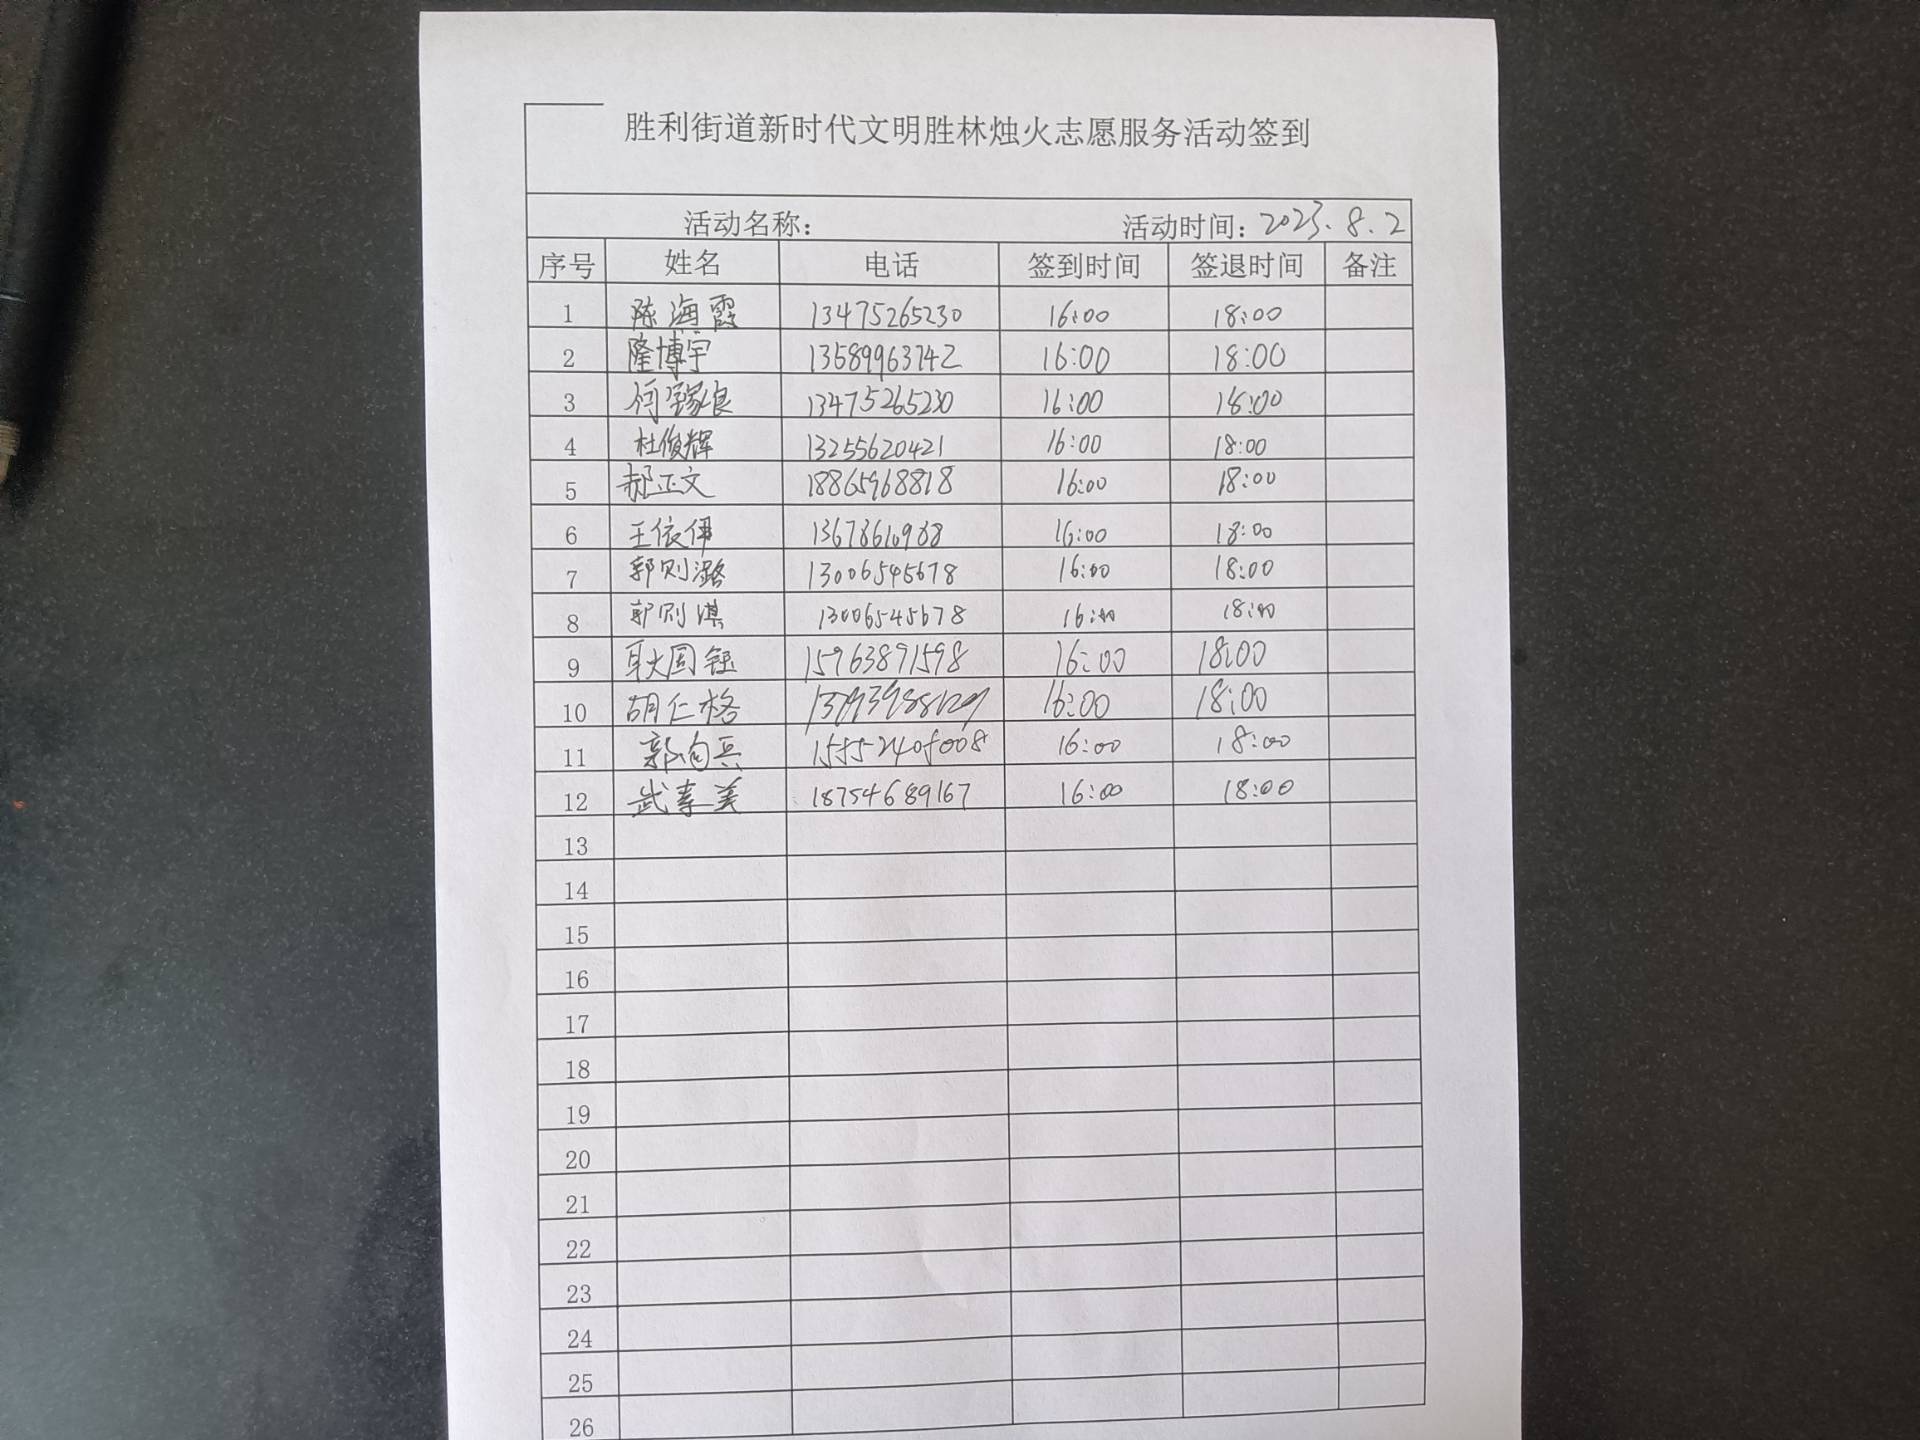 胜利街道新时代文明胜林烛火志愿服务活动签到
活动名称： 活动时间：2023.8.2
序号 姓名 电话 签到时间 签退时间 备注
1 陈海霞 13475265230 16:00 18:00
2 隆博宇 13589963742 16:00 18:00
3 何 13475265230 16:00 18:00
4 杜俊辉 13255620421 16:00 18:00
5 郝正文 18865968818 16:00 18:00
6 王依伊 13678610988 16:00 18:00
7 郭则潞 13006545678 16:00 18:00
8 郭则淇 13006545678 16:00 18:00
9 耿圆钰 15963891598 16:00 18:00
10 胡仁格 16:00 18:00
11 郭向兵 15552405008 16:00 18:00
12 武素美 18754689167 16:00 18:00
13
14
15
16
17
18
19
20
21
22
23
24
25
26